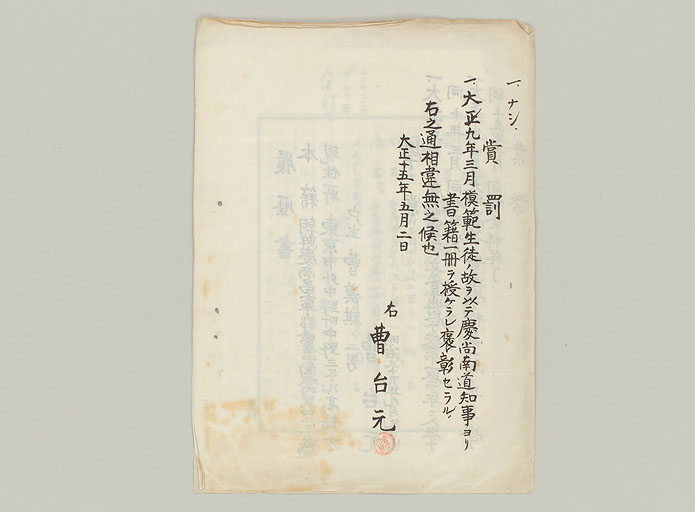 一、ナシ、
賞罰
一、大正九年三月模範生徒ノ故ヲ以テ慶尚南道知事ヨリ
書籍一冊ヲ授ケラレ褒彰セラル、
右之通相違無之候也
大正十五年五月二日
右
曹台元